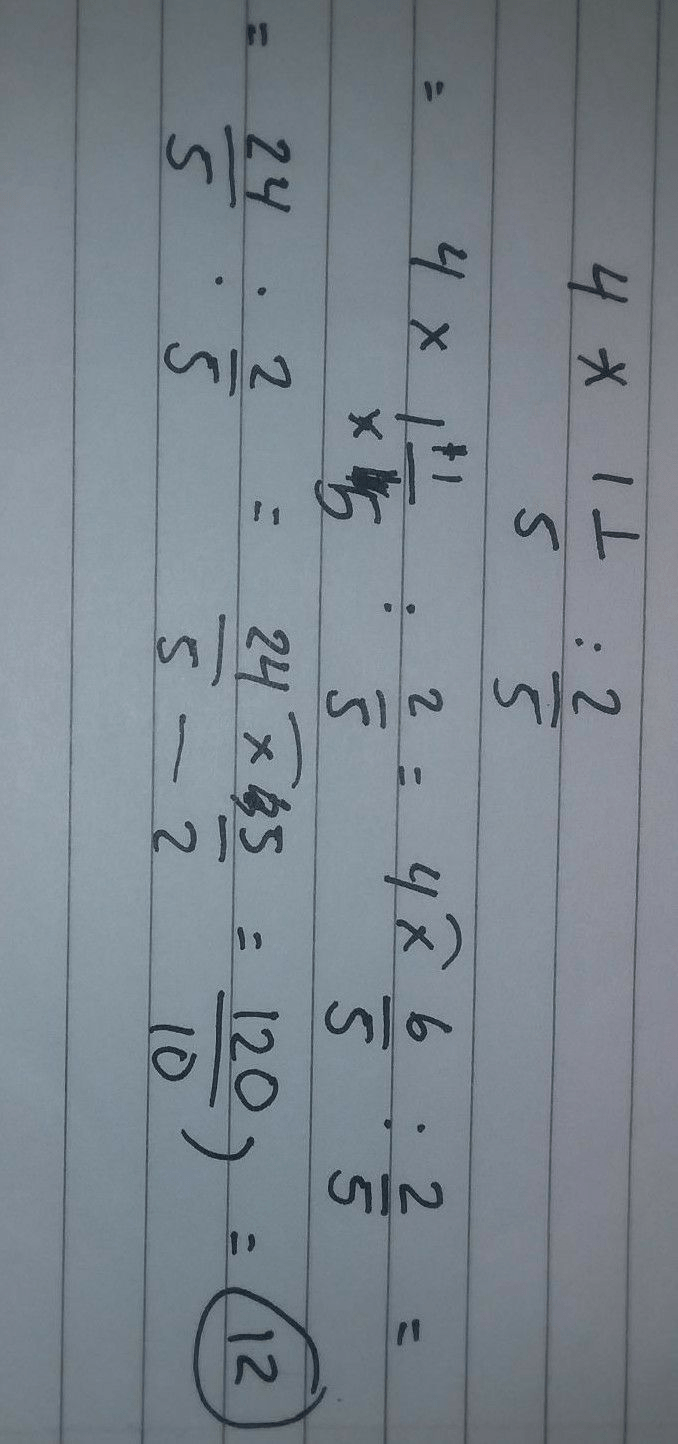 4 × 1 1/5 : 2/5
= 4 × 1 +1/×5 : 2/5 = 4 × 6/5 : 2/5 =
= 24/5 : 2/5 = 24/5 × 5/2 = 120/10 ) = 12